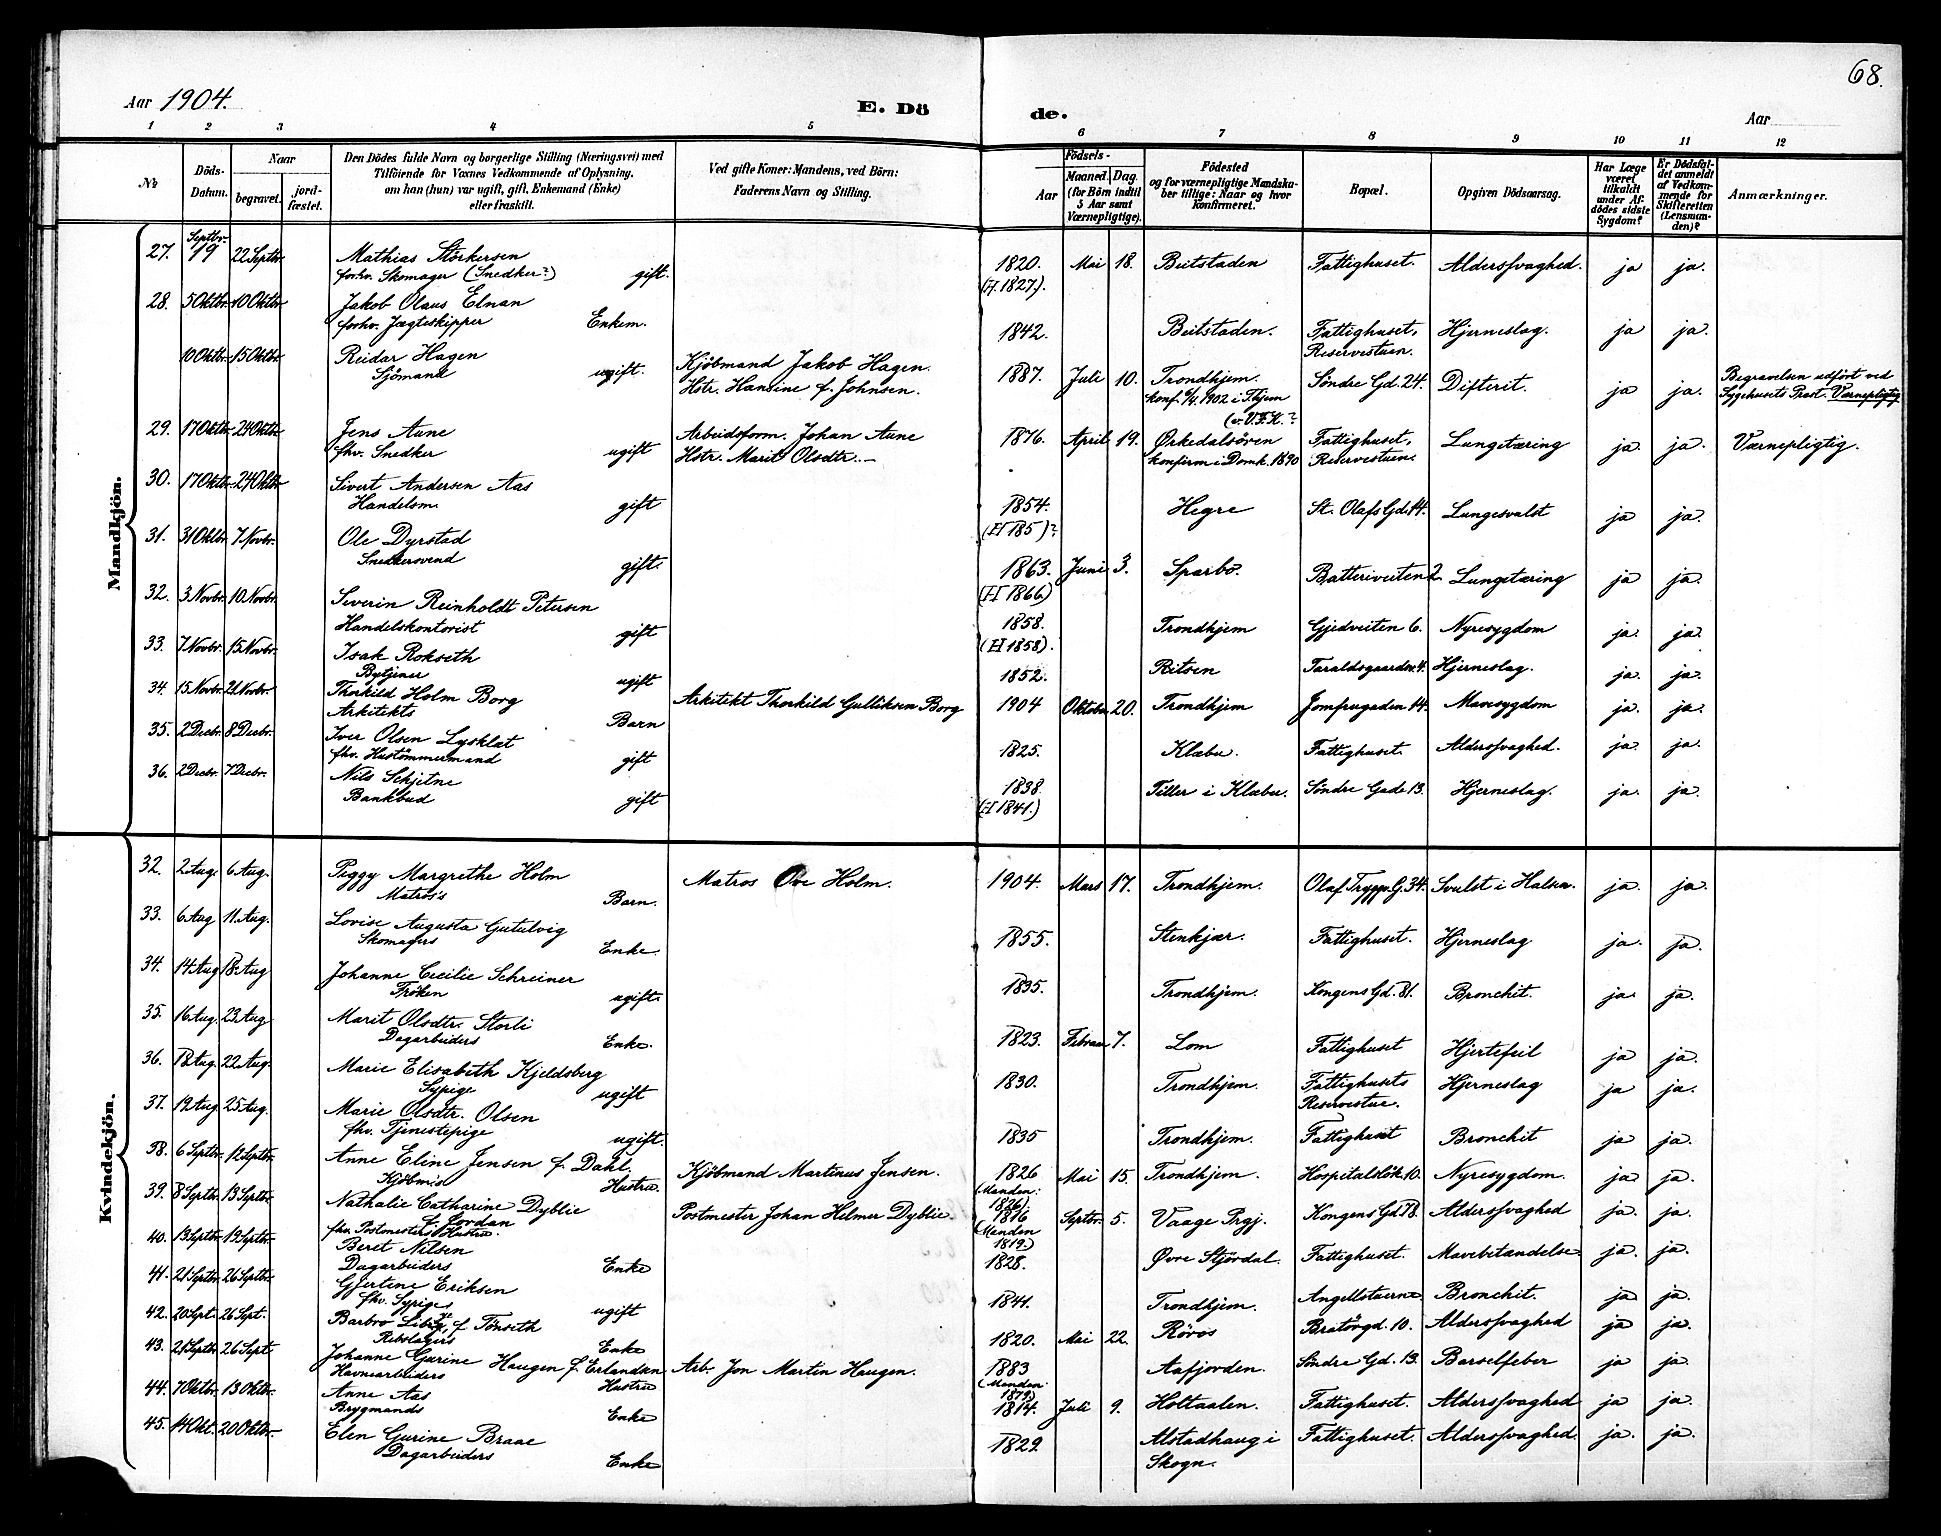 68.
Aar 1904. E. Dö de. Aar
1 2 3 4 5 6 7 8 9 10 11 12
№ Döds-Datum. Naar begravet. jordfæstet. Den Dödes fulde Navn og borgerlige Stilling (Næringsvei) med Tilföiende for Voxnes Vedkommende af Oplysning, om han (hun) var ugift, gift, Enkemand (Enke) eller fraskilt. Ved gifte Koner: Mandens, ved Börn: Faderens Navn og Stilling. Födsels- Aar Maaned. Dag. (for Börn indtil 5 Aar samt Værnepligtige). Födested og for værnepligtige Mandskaber tillige: Naar og hvor konfirmeret. Bopæl. Opgiven Dödsaarsag. Har Læge været tilkaldt under Afdödes sidste Sygdom? Er Dödsfaldet anmeldt af Vedkommende for Skifteretten (Lensmanden)? Anmærkninger.
Mandkjön.
27. Septbr. 19 22 Septbr Mathias Störkersen 1820. Mai 18. Beitstaden Fattighuset. Aldersfvaghed. ja ja.
forhv. Skomager (Snedker?) gift. (H. 1827).
28. 5 Oktbr. 10 Oktbr Jakob Olaus Elnan
forhv. Jægteskipper Enkem. 1842. Beitstaden. Fattighuset, Hjerneslag. ja ja.
Reservestuen.
10 Oktbr. 15 Oktbr Reidar Hagen Kjöbmand Jakob Hagen. 1887. Juli 10. Trondhjem. Söndre Gd. 24. Difterit. ja ja. Begravelsen udfört ved
Sjömand ugift. Hstr. Hansine f. Johnsen. konf. 6/4 1902 i Thjem Sygehusets Præst. Værnepligtig
(v. V.F.K.?
29. 17 Oktbr 24 Oktbr Jens Aune Arbeidsform. Johan Aune 1876. April 19. Ørkedalsören Fattighuset, Lungetæring ja ja. Værnepligtig.
fhv. Snedker ugift Hstr. Marit Olsdtr. konfirm i Domk. 1890 Reservestuen.
30. 17 Oktbr 24 Oktbr Sivert Andersen Aas
Handelsm. gift 1854. Hegre St. Olafs Gd. 14. Lungesvulst ja ja.
(H 185 )?
31. 31 Oktbr 7 Novbr. Ole Dyrstad
Snedkersvend gift. 1863. Juni 3. Sparbo. Batteriveiten 2. Lungetæring ja ja.
(H 1866)
32. 3 Novbr. 10 Novbr. Severin Reinholdt Petersen
Handelskontorist gift 1858. Trondhjem Gjedveiten 6. Nyresygdom ja. ja.
(H 1858).
33. 7 Novbr. 15 Novbr. Isak Rokseth
Bytjener ugift 1852. Ritsen Taraldsgaarden 4. Hjerneslag. ja. ja.
34. 15 Novbr. 21 Novbr. Thorkild Holm Borg Arkitekt Thorkild Gulliksen Borg 1904 Oktober 20. Trondhjem Jomfrugaden 14. Mavesygdom ja. ja.
Arkitekts Barn
35. 2 Decbr. 8 Decbr. Iver Olsen Lysklæt 1825. Klæbu. Fattighuset. Aldersfvaghed. ja. ja.
fhv. Hustömmermand gift
36. 2 Decbr. 7 Decbr. Nils Schjetne 1838. Tiller i Klæbu. Söndre Gade 13. Hjerneslag. ja. ja.
Bankbud gift (H 1841.)
Kvindekjön.
32. 2 Aug. 6 Aug. Peggy Margrethe Holm Matros Ove Holm. 1904. Mars 17. Trondhjem. Olaf Trygv. G. 34. Svulst i Halsen. ja. ja.
Matros's Barn.
33. 6 Aug 11. Aug. Lovise Augusta Gutulvig 1855. Stenkjær. Fattighuset. Hjerneslag ja. ja.
Skomagers Enke.
34. 14 Aug 18. Aug Johanne Cecilie Schreiner 1835. Trondhjem. Kongens Gd. 81. Bronchit. ja. ja.
Fröken ugift.
35. 16 Aug. 23 Aug Marit Olsdtr. Storli 1823. Februar 7. Lom Fattighuset Hjertefeil ja ja.
Dagarbeiders Enke.
36. 18 Aug. 22 Aug. Marie Elisabeth Kjeldsberg 1830. Trondhjem. Fattighusets Hjerneslag ja ja.
Sypige ugift Reservestue.
37. 19 Aug. 25 Aug. Marie Olsdtr. Olsen 1835 Trondhjem. Fattighuset Bronchit ja ja.
fhv. Tjenestepige ugift.
38. 6 Septbr. 12 Septbr. Anne Eline Jensen f. Dahl. Kjöbmand Martinus Jensen. 1826 Mai 15. Trondhjem. Hospitalslök. 10. Nyresygdom. ja ja.
Kjöbmds Hustru. (Manden: 1826).
39. 8 Septbr. 13 Septbr. Nathalie Catharine Dyblie Postmester Johan Helmer Dyblie. 1816 Septbr. 5. Vaage Prgj. Kongens Gd 78. Aldersfvaghed ja. ja.
f. Jordan
fhv. Postmesters Hustru. (Manden 1819.)
40. 13 Septbr. 19 Septbr. Beret Nilsen 1828. Øvre Stjördal. Fattighuset. Mavebetændelse ja. ja.
Dagarbeiders Enke
41. 21 Septbr. 26 Septbr. Gjertine Eriksen 1841. Trondhjem. Angellstuerne Bronchit. ja ja.
fhv. Sypige ugift
42. 20 Sept. 26 Sept. Barbro f. Tönseth 1820. Mai 22. Röros Bratörgd. 10. Aldersfvaghed ja ja.
Rebslagers Enke
43. 21 Septbr 26 Sept. Johanne Gurine Haugen f. Erlandsen Arb. Jon Martin Haugen. 1883 Aafjorden. Söndre Gd. 13. Barselfeber ja ja.
Havnearbeiders Hustru (Manden: 1879)
44. 7 Oktbr. 13 Oktbr. Anne Aas 1814. Juli 9. Holtaalen. Fattighuset. Aldersfvaghed ja ja.
Brygmands Enke
45. 14 Okt. 20 Oktbr. Elen Gurine Braae 1829. Alstadhaug i Fattighuset. Aldersfvaghed. ja. ja.
Dagarbeiders Enke Skogn.